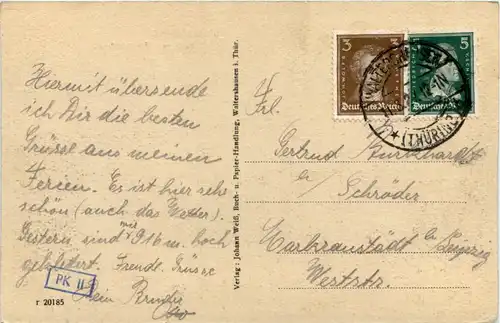 Hiermit übersende
ich Dir die besten
Grüsse aus meinen
Ferien. Es ist hier sehr
schön (auch das Wetter).
Gestern sind wir 916 m. hoch
geklettert. Frendl. Grüsse
Dein Bruder
PK II
r 20185
Verlag: Johann Weiß, Buch- u. Papier-Handlung, Waltershausen i. Thür.
3 3
Deutsches Reich
5
Deutsches Reich
WALTERSHAUSEN
(THÜRING
Frl.
Gertrud Burkhardt
b/ Schröder
Markranstädt bei Leipzig
Weststr.